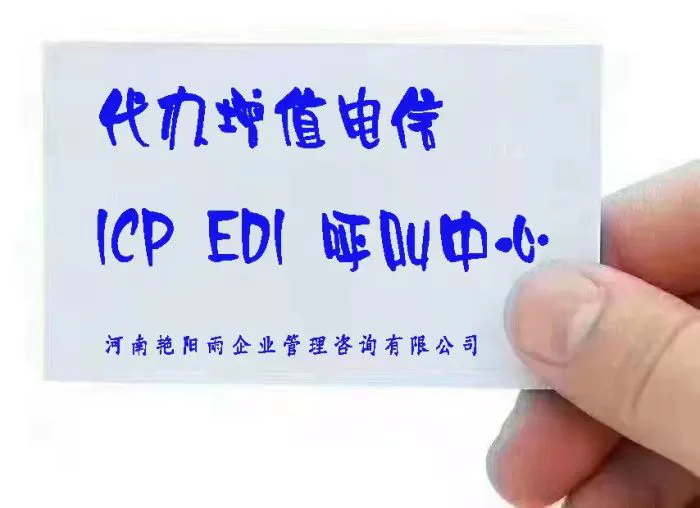 代办增值电信
ICP EDI 呼叫中心
河南艳阳雨企业管理咨询有限公司